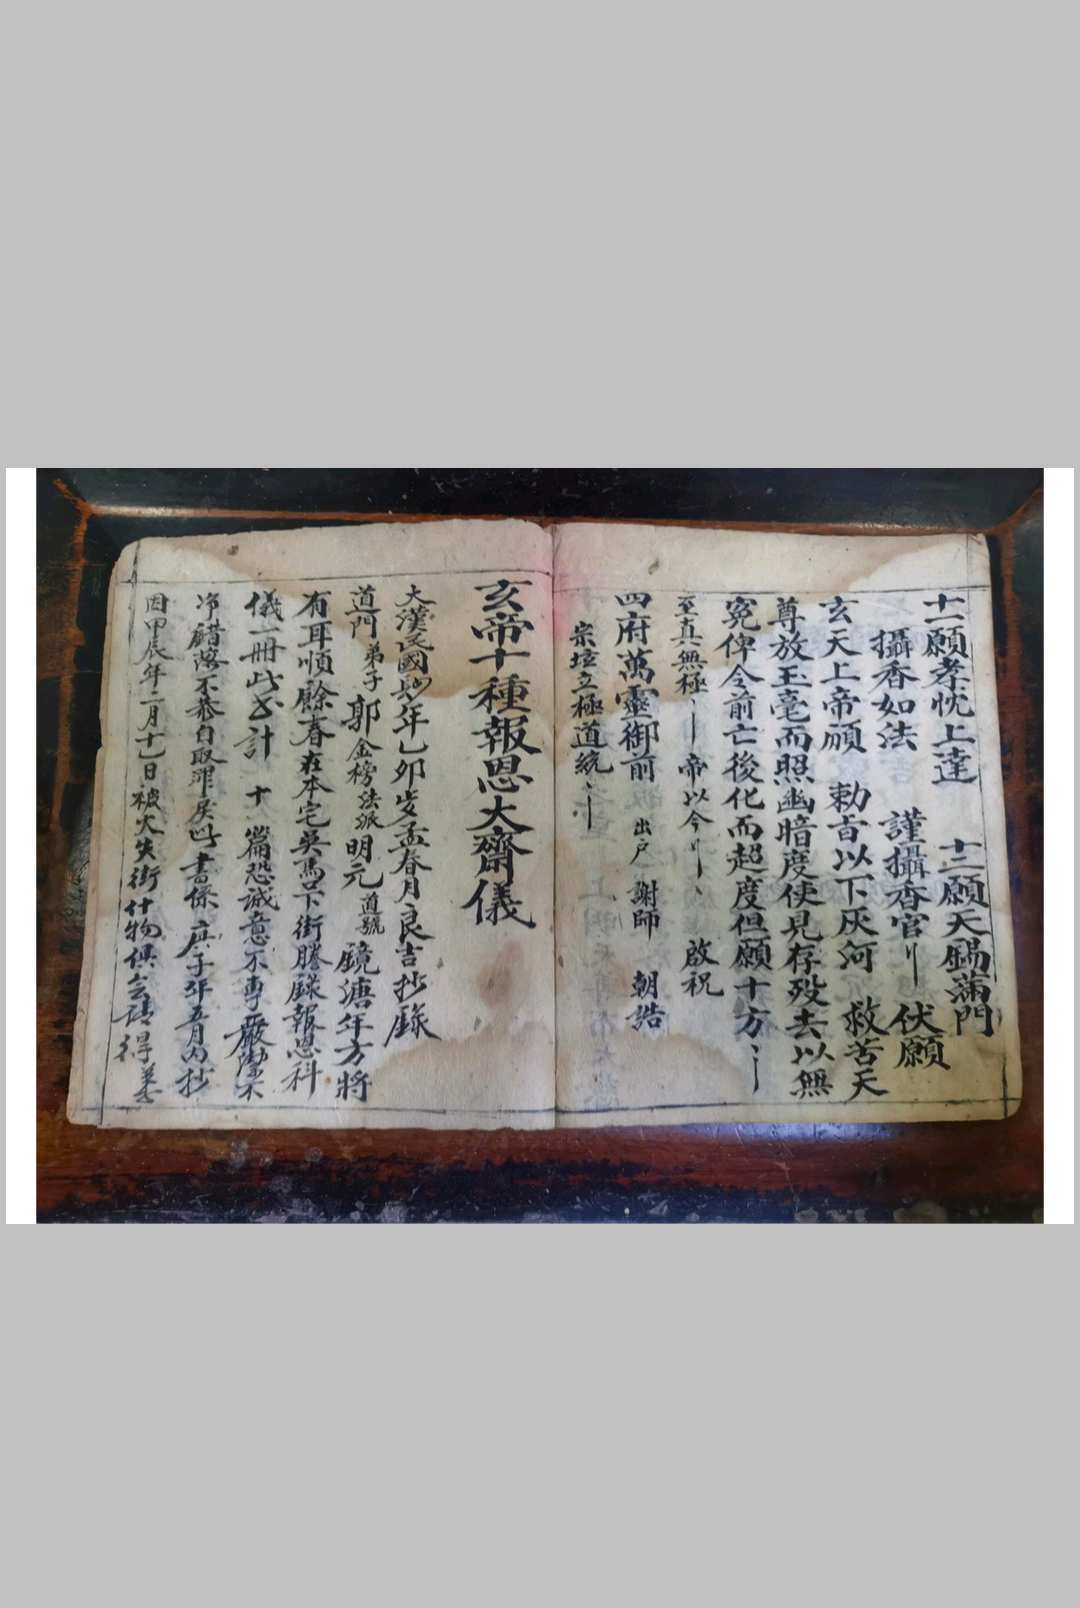 十一願孝忱上達　十二願天錫滿門
攝香如法　謹攝香官　伏願
玄天上帝願　勅旨以下灰河　救苦天
尊放玉毫而照幽暗度使見存歿去以無
冤俾今前亡後化而超度但願十方
至真無極　帝以今　啟祝
四府萬靈御前　出戶　謝師　朝誥
宗壇立極道統
玄帝十種報恩大齋儀
大漢民國　年乙卯歲孟春月良吉抄錄
道門弟子郭金榜法派明元道號鏡溏年方將
有耳順餘春在本宅吳馬口下街謄錄報恩科
儀一冊此書計　十八篇恐誠意不專嚴潔不
淨錯落不恭自取罪戾此書係庚子年五月內抄
因甲辰年二月十七日被火失街什物俱